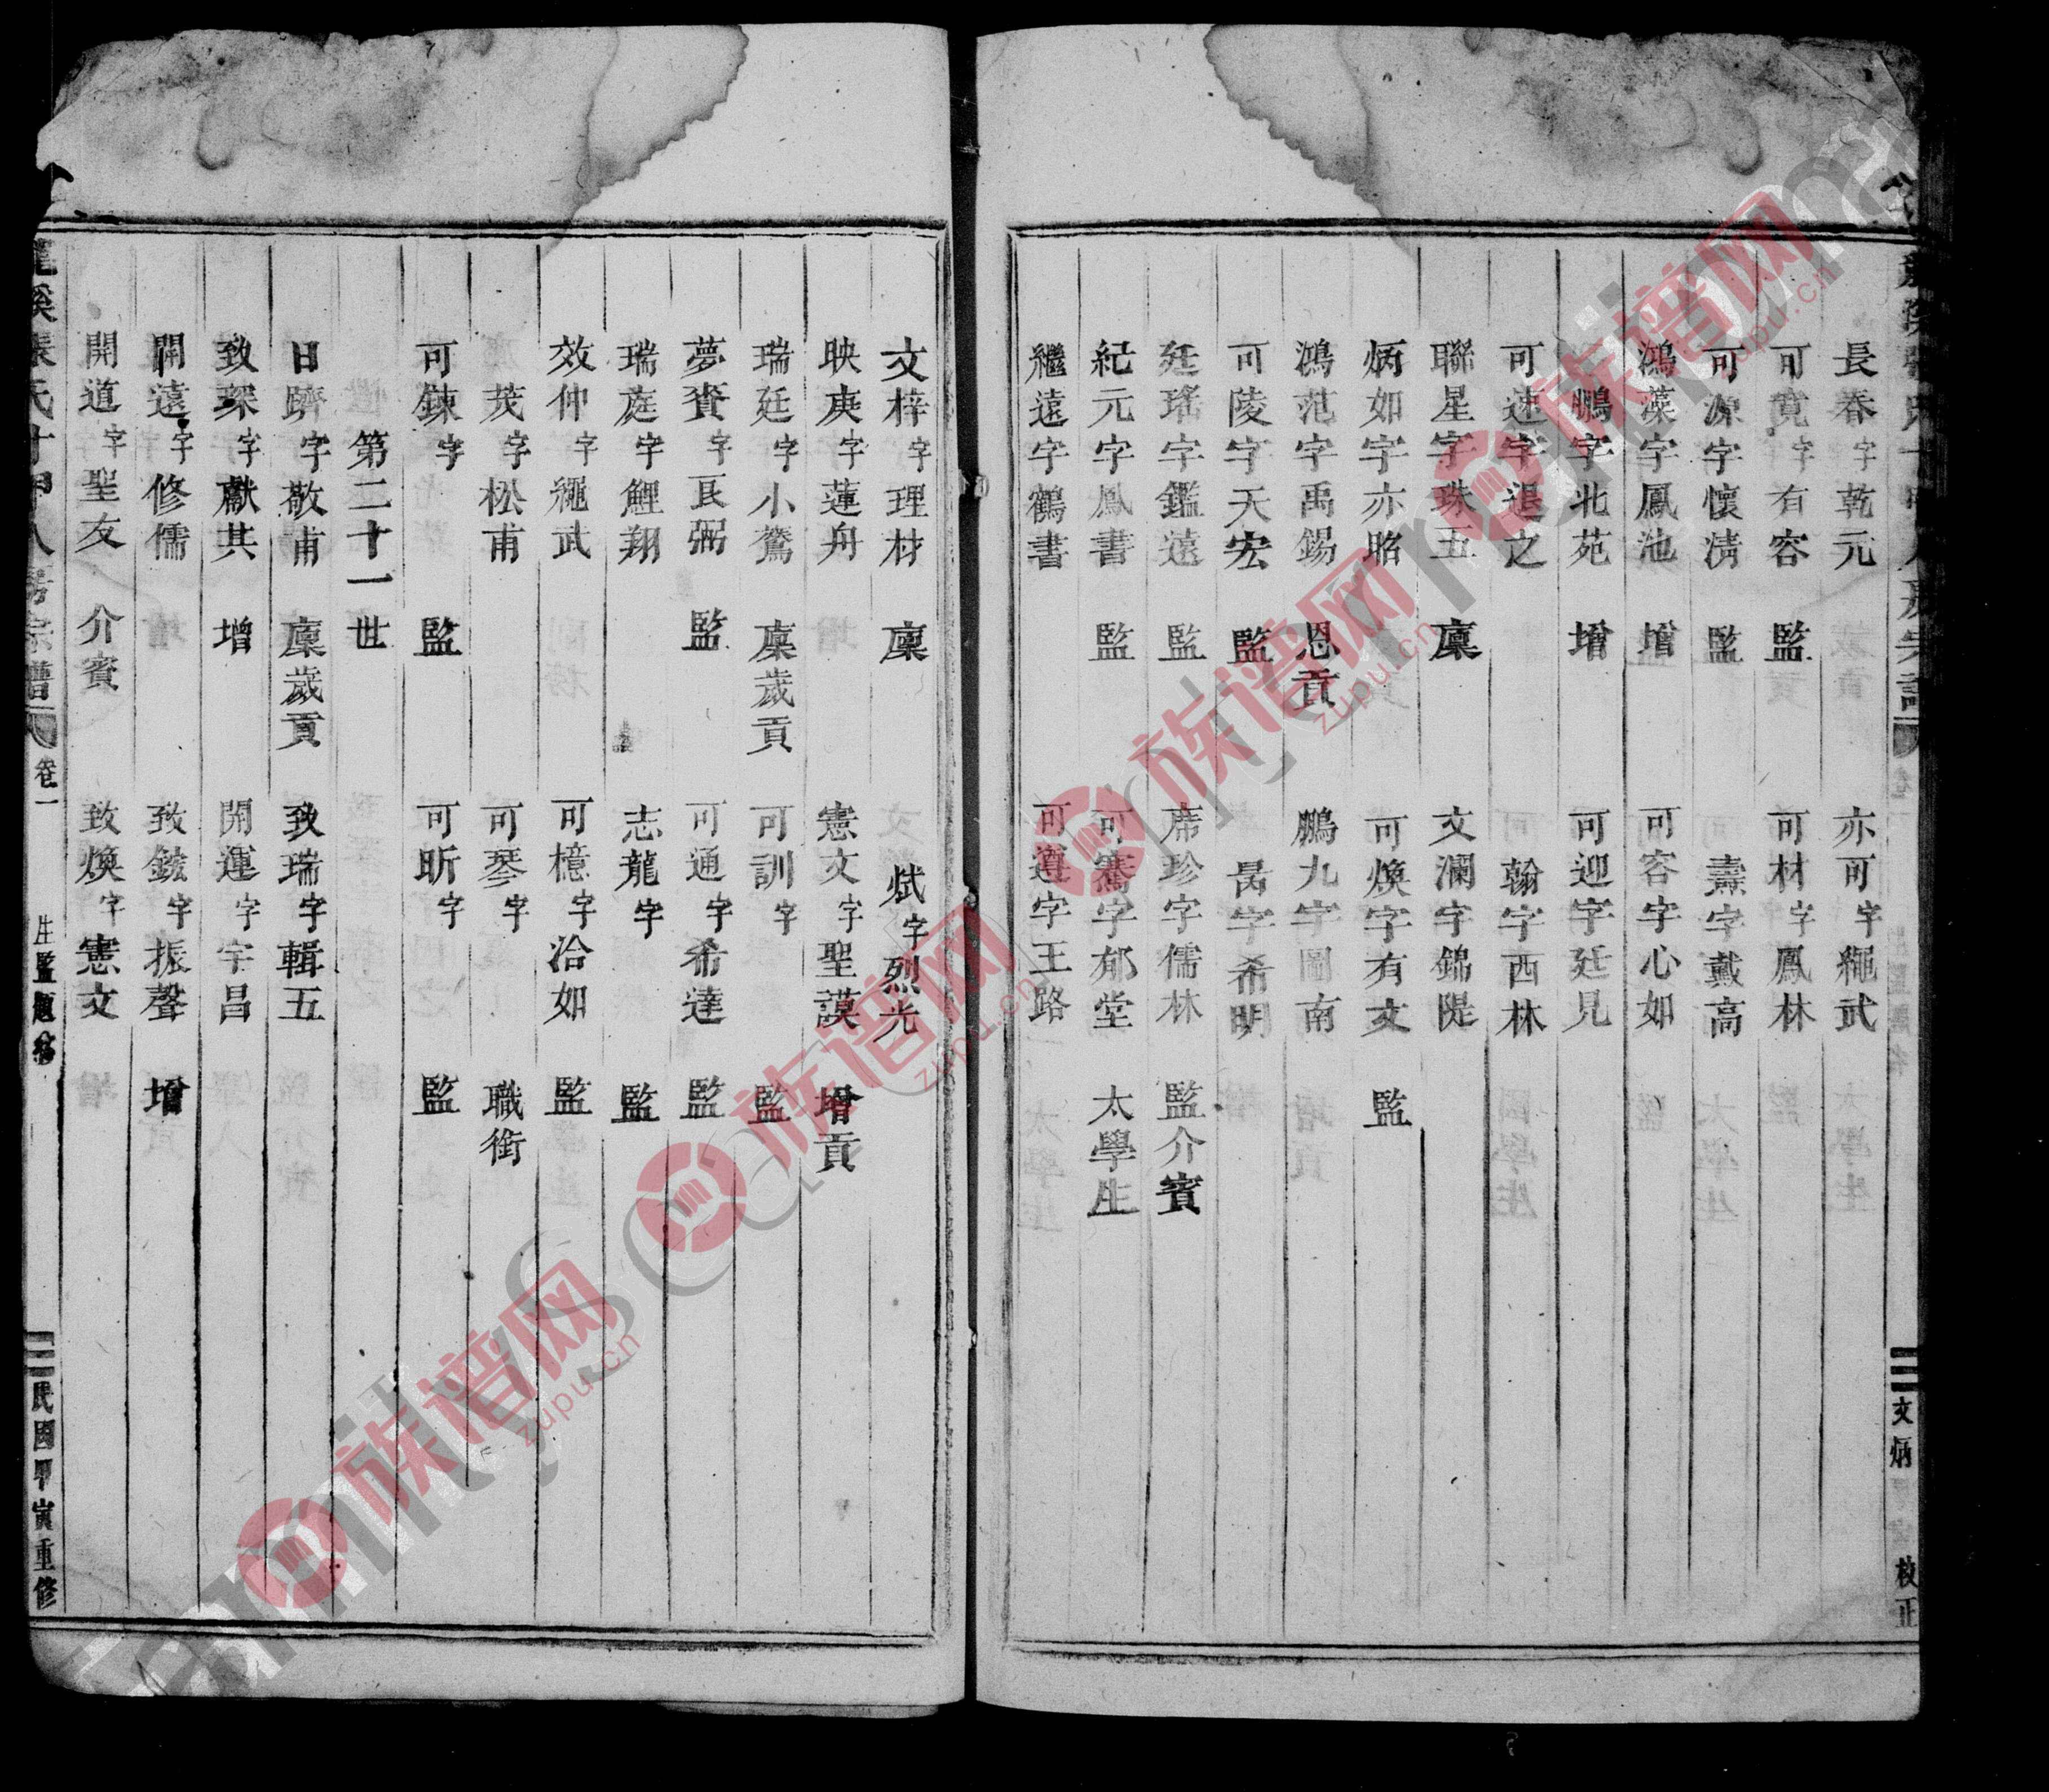 長春字乾元 亦可字繩武
可寬字有容 監 可材字鳳林
可源字懷清 監 壽字戴高
鴻藻字鳳池 增 可容字心如
鵬字北苑 增 可迎字廷見
可速字退之 翰字西林
聯星字珠五 廩 文瀾字錦隄
炳如字亦昭 可煥字有文 監
鴻范字禹錫 恩貢 鵬九字圖南
可陵字天宏 監 昺字希明
廷瑤字鑑遠 監 席珍字儒林 監介賓
紀元字鳳書 監 可騫字郁堂 太學生
繼遠字鶴書 可遵字王路
文炳 校正
文梓字理材 廩 斌字烈光
映庚字蓮舟 憲文字聖謨 增貢
瑞廷字小鶩 廩歲貢 可訓字 監
夢賚字良弼 監 可通字希達 監
瑞莛字鯉翔 志龍字 監
效仲字繩武 可檍字洽如 監
茂字松甫 可琴字 職銜
可鍊字 監 可昕字 監
第二十一世
日躋字敬甫 廩歲貢 致瑞字輯五
致琛字獻其 增 開運字宇昌
開遠字修儒 致鋐字振聲 增
開道字聖友 介賓 致煥字憲文
龍溪張氏十甲八房宗譜 卷一 生監題名 民國甲寅重修
族谱网
zupu.cn
族谱网
zupu.cn
族谱网
zupu.cn
族谱网
zupu.cn
族谱网
zupu.cn